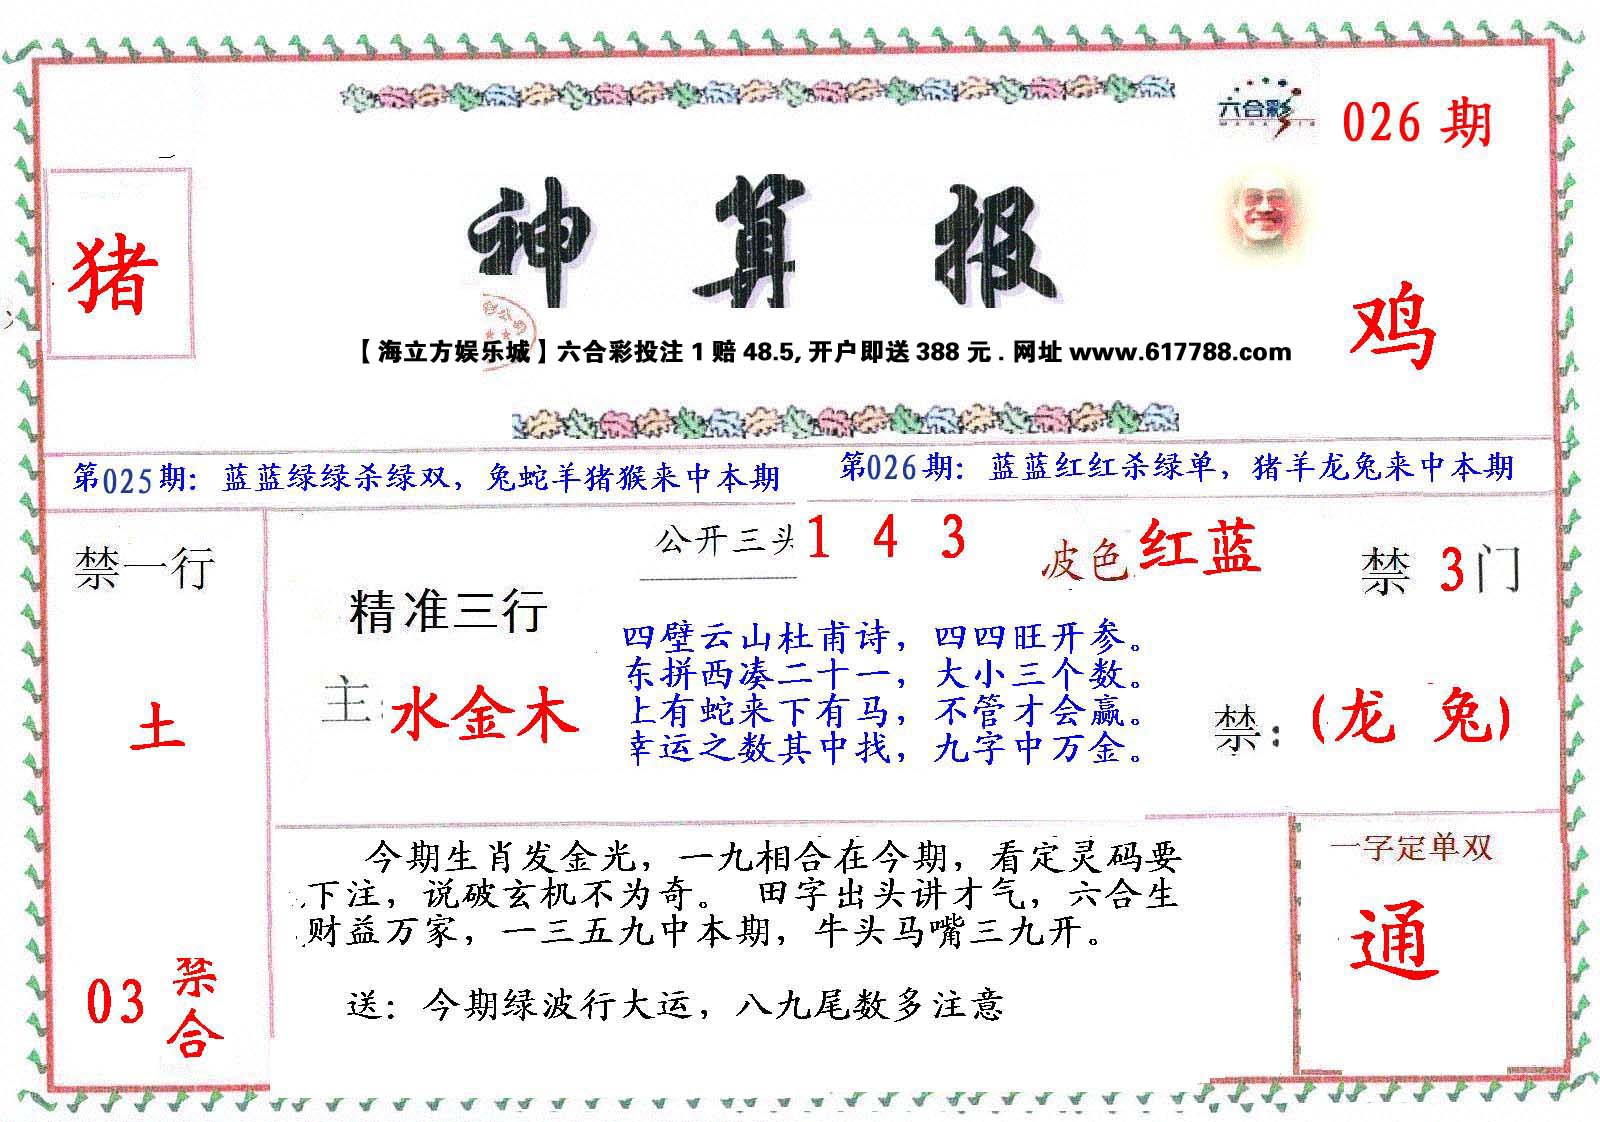 六合彩
026 期
猪
神算报
鸡
【海立方娱乐城】六合彩投注 1 赔 48.5, 开户即送 388 元 . 网址 www.617788.com
第025期：蓝蓝绿绿杀绿双，兔蛇羊猪猴来中本期
第026期：蓝蓝红红杀绿单，猪羊龙兔来中本期
禁一行
土
03 禁合
公开三头 1 4 3
波色 红蓝
禁 3 门
精准三行
主: 水金木
四壁云山杜甫诗，四四旺开参。
东拼西凑二十一，大小三个数。
上有蛇来下有马，不管才会赢。
幸运之数其中找，九字中万金。
禁: (龙 兔)
今期生肖发金光，一九相合在今期，看定灵码要
下注，说破玄机不为奇。 田字出头讲才气，六合生
财益万家，一三五九中本期，牛头马嘴三九开。
送：今期绿波行大运，八九尾数多注意
一字定单双
通